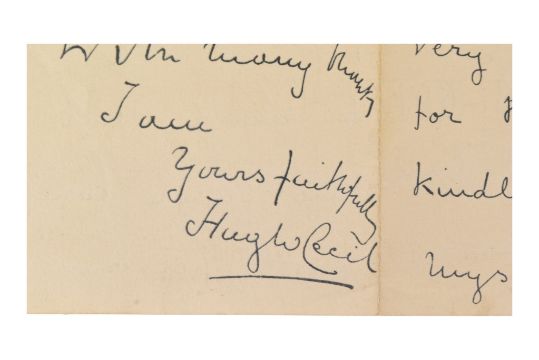 With many thanks
I am
Yours faithfully
Hugh Cecil
very
for
kindl
mys